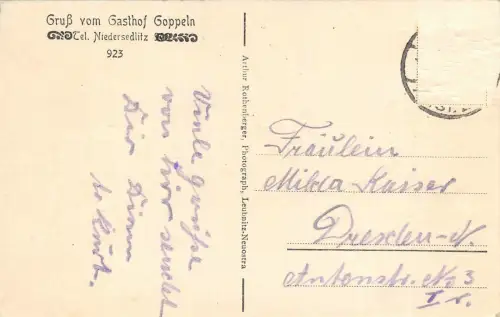 Gruß vom Gasthof Goppeln
Tel. Niedersedlitz
923
Viele grüße
von hir sendet
Dir Deine
Kurt.
Arthur Rothenberger, Photograph, Leubnitz-Neuostra
Fräulein
Milda Kaiser
Dresden-N.
Antonstr. No 3
I r.